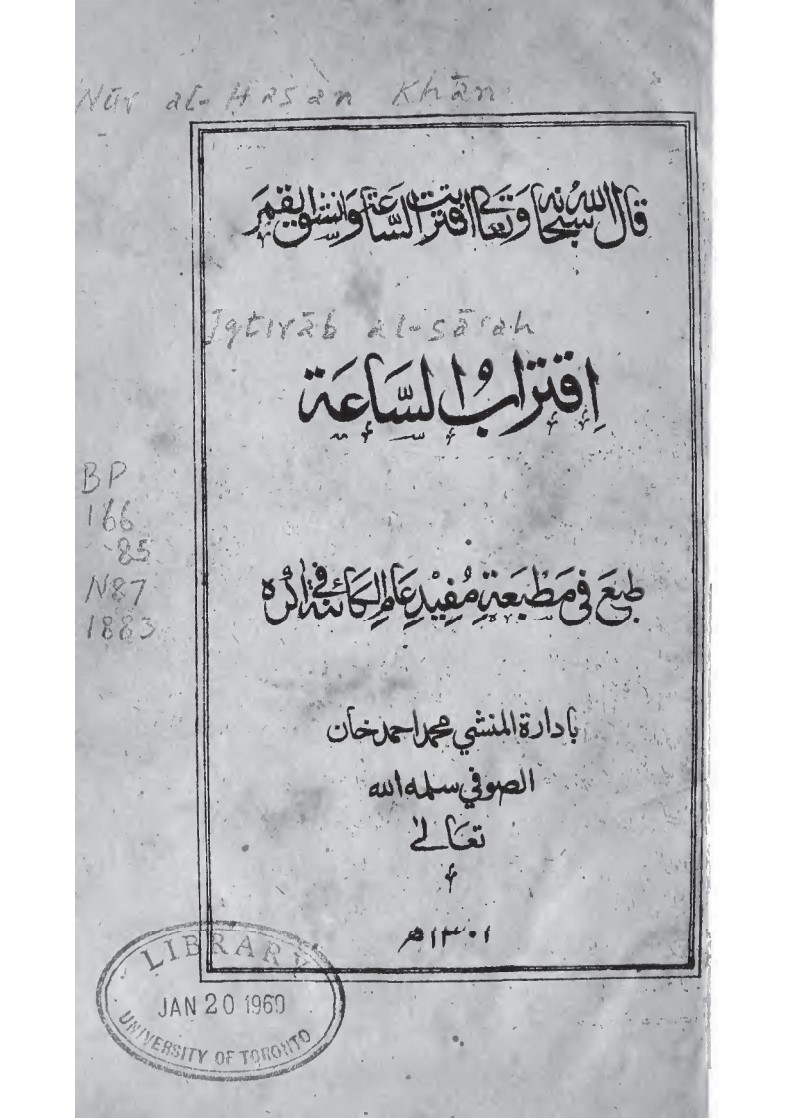 Nūr al-Hasan Khān
قال الله سبحانه وتعالى اقتربت الساعة وانشق القمر
Iqtirāb al-sāʻah
اِقتِرَابُ السَّاعَة
BP
166
.85
N87
1883
طبعَ فى مَطْبَعَةِ مُفِيْدِ عَامِ الكائنة في اگره
بادارة المنشي محمد احمد خان
الصوفي سلمه الله
تعَالےٰ
١٣٠١ھ
LIBRARY
JAN 20 1960
UNIVERSITY OF TORONTO